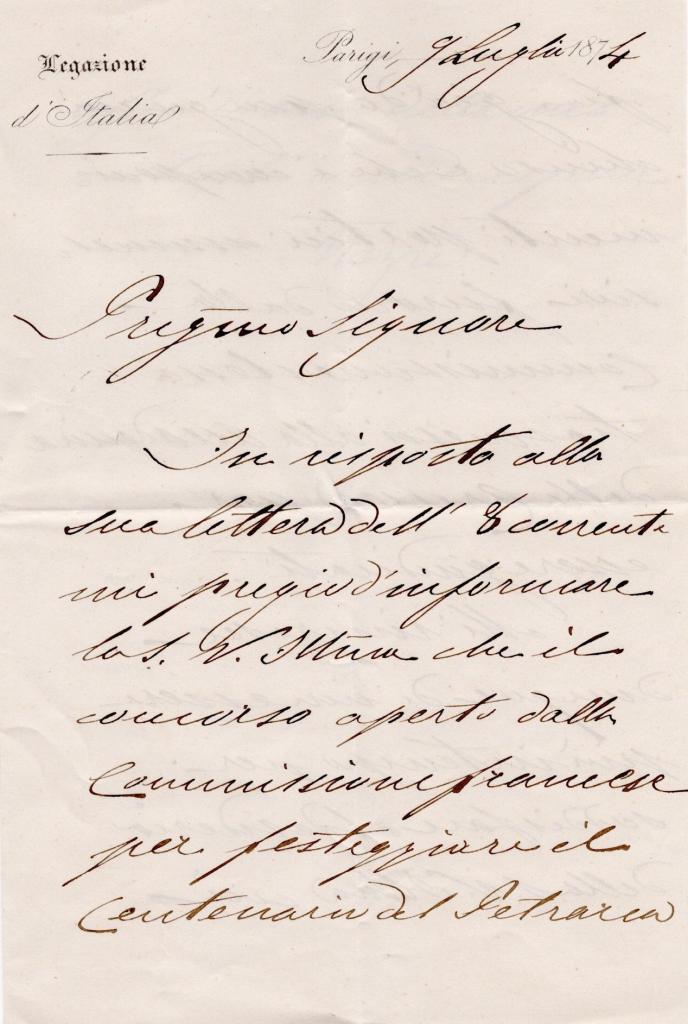 Legazione
d'Italia
Parigi, 9 Luglio 1874
Pregmo Signore
In risposta alla
sua lettera dell' 8 corrente
mi pregio d'informare
la S. V. Illma che il
concorso aperto dalla
Commissione francese
per festeggiare il
Centenario del Petrarca